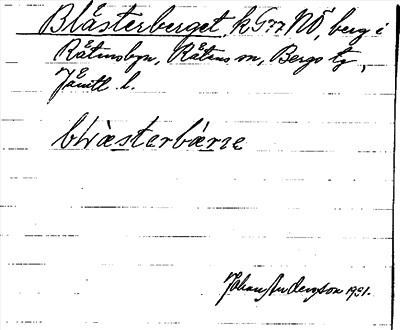 Blåsterberget, k G77 NÖ, berg i
Råtansbyn, Råtans sn, Bergs tg,
Jämtl. l.
blɩ̀æsterbɶ́rɿe
Johan Anderson 1931.